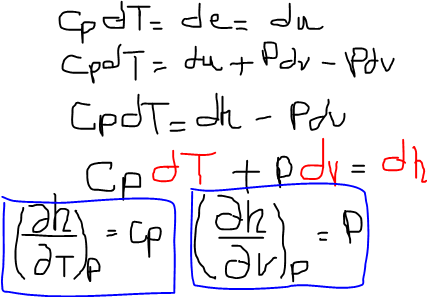 CpdT = de = du
CpdT = du + Pdv - Pdv
CpdT = dh - Pdv
Cp dT + P dv = dh
(∂h/∂T)p = Cp (∂h/∂v)p = P